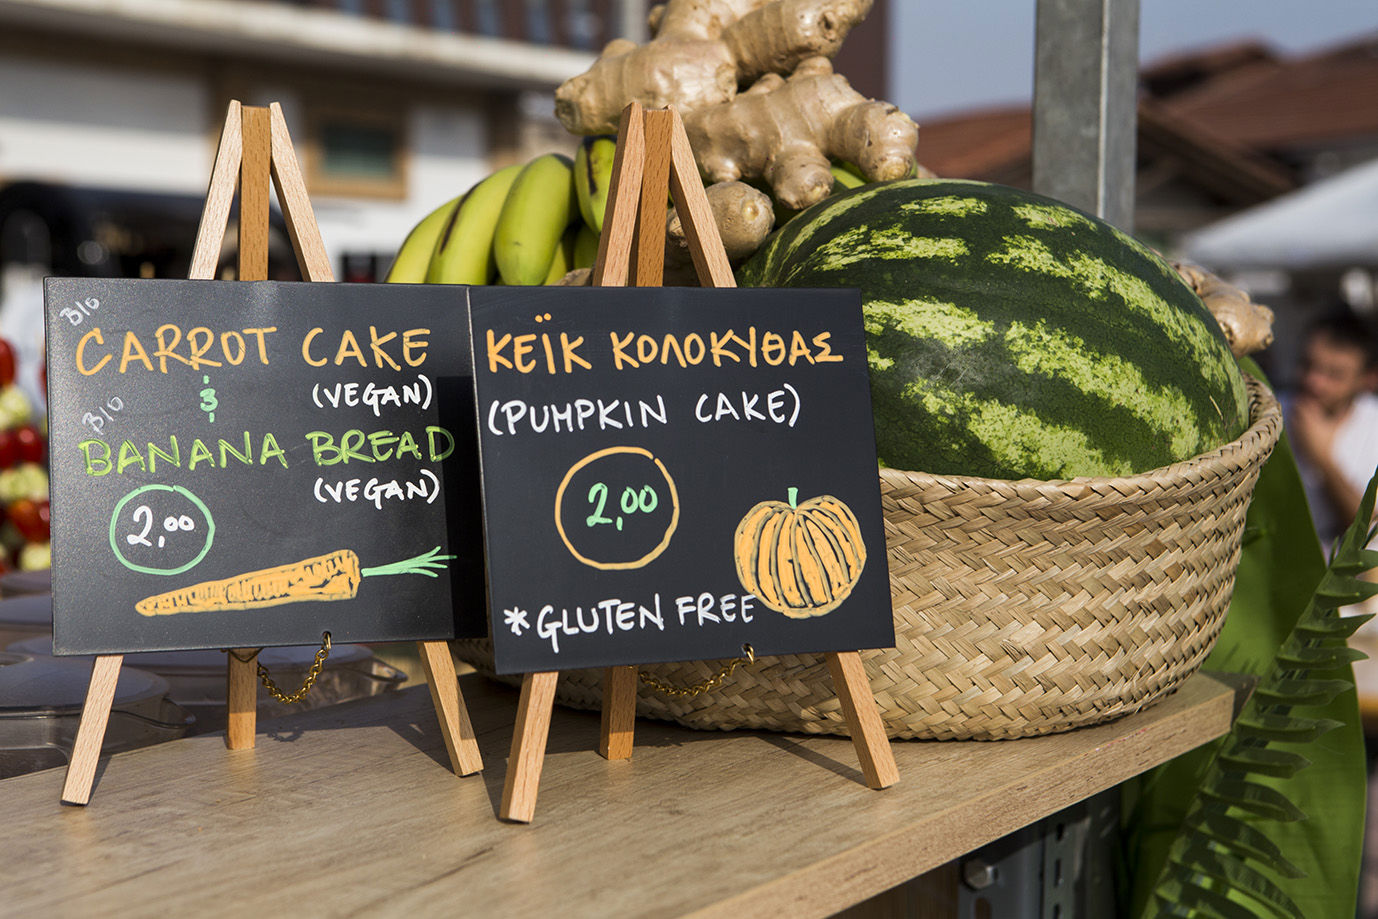 Bio
CARROT CAKE
&
(VEGAN)
Bio
BANANA BREAD
(VEGAN)
2,00
ΚΕΪΚ ΚΟΛΟΚΥΘΑΣ
(PUMPKIN CAKE)
2,00
*GLUTEN FREE